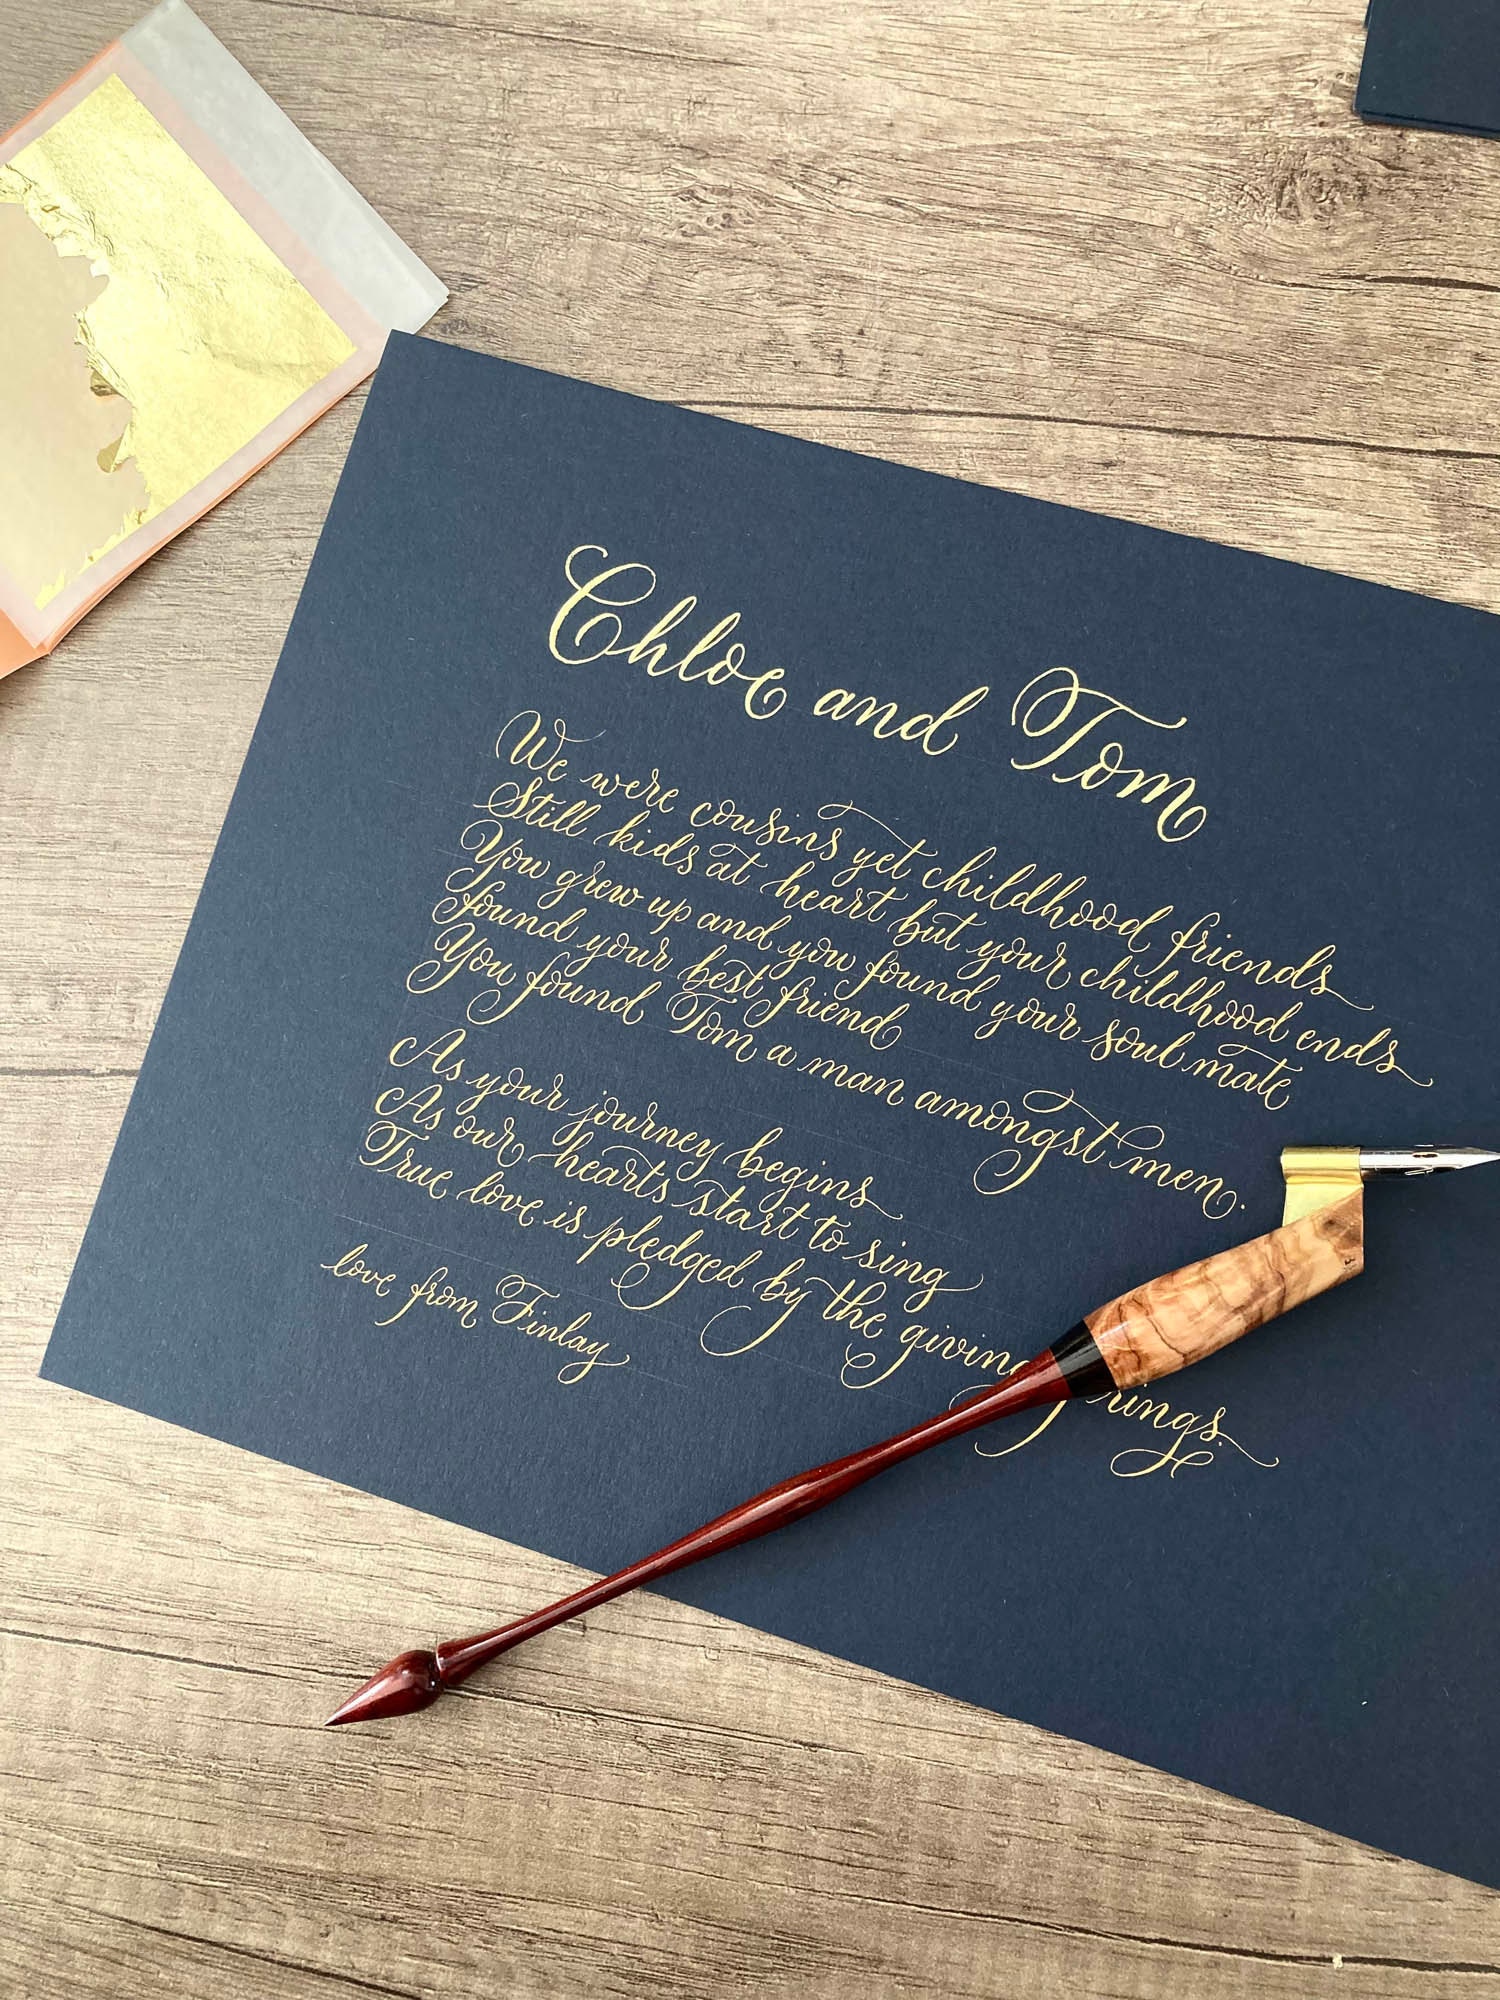 Chloe and Tom
We were cousins yet childhood friends
Still kids at heart but your childhood ends
You grew up and you found your soul mate
found your best friend
You found Tom a man amongst men.
As your journey begins
As our hearts start to sing
True love is pledged by the giving rings.
love from Finlay